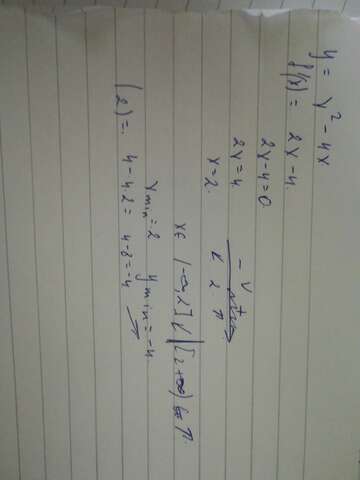 y = x² - 4x
f'(x) = 2x - 4.
2x - 4 = 0
2x = 4
x = 2.
- V +
2
x ∈ (-∞, 2] ↓ [2 +∞)
x min = 2 y min = -4
(2) = 4 - 4·2 = 4 - 8 = -4